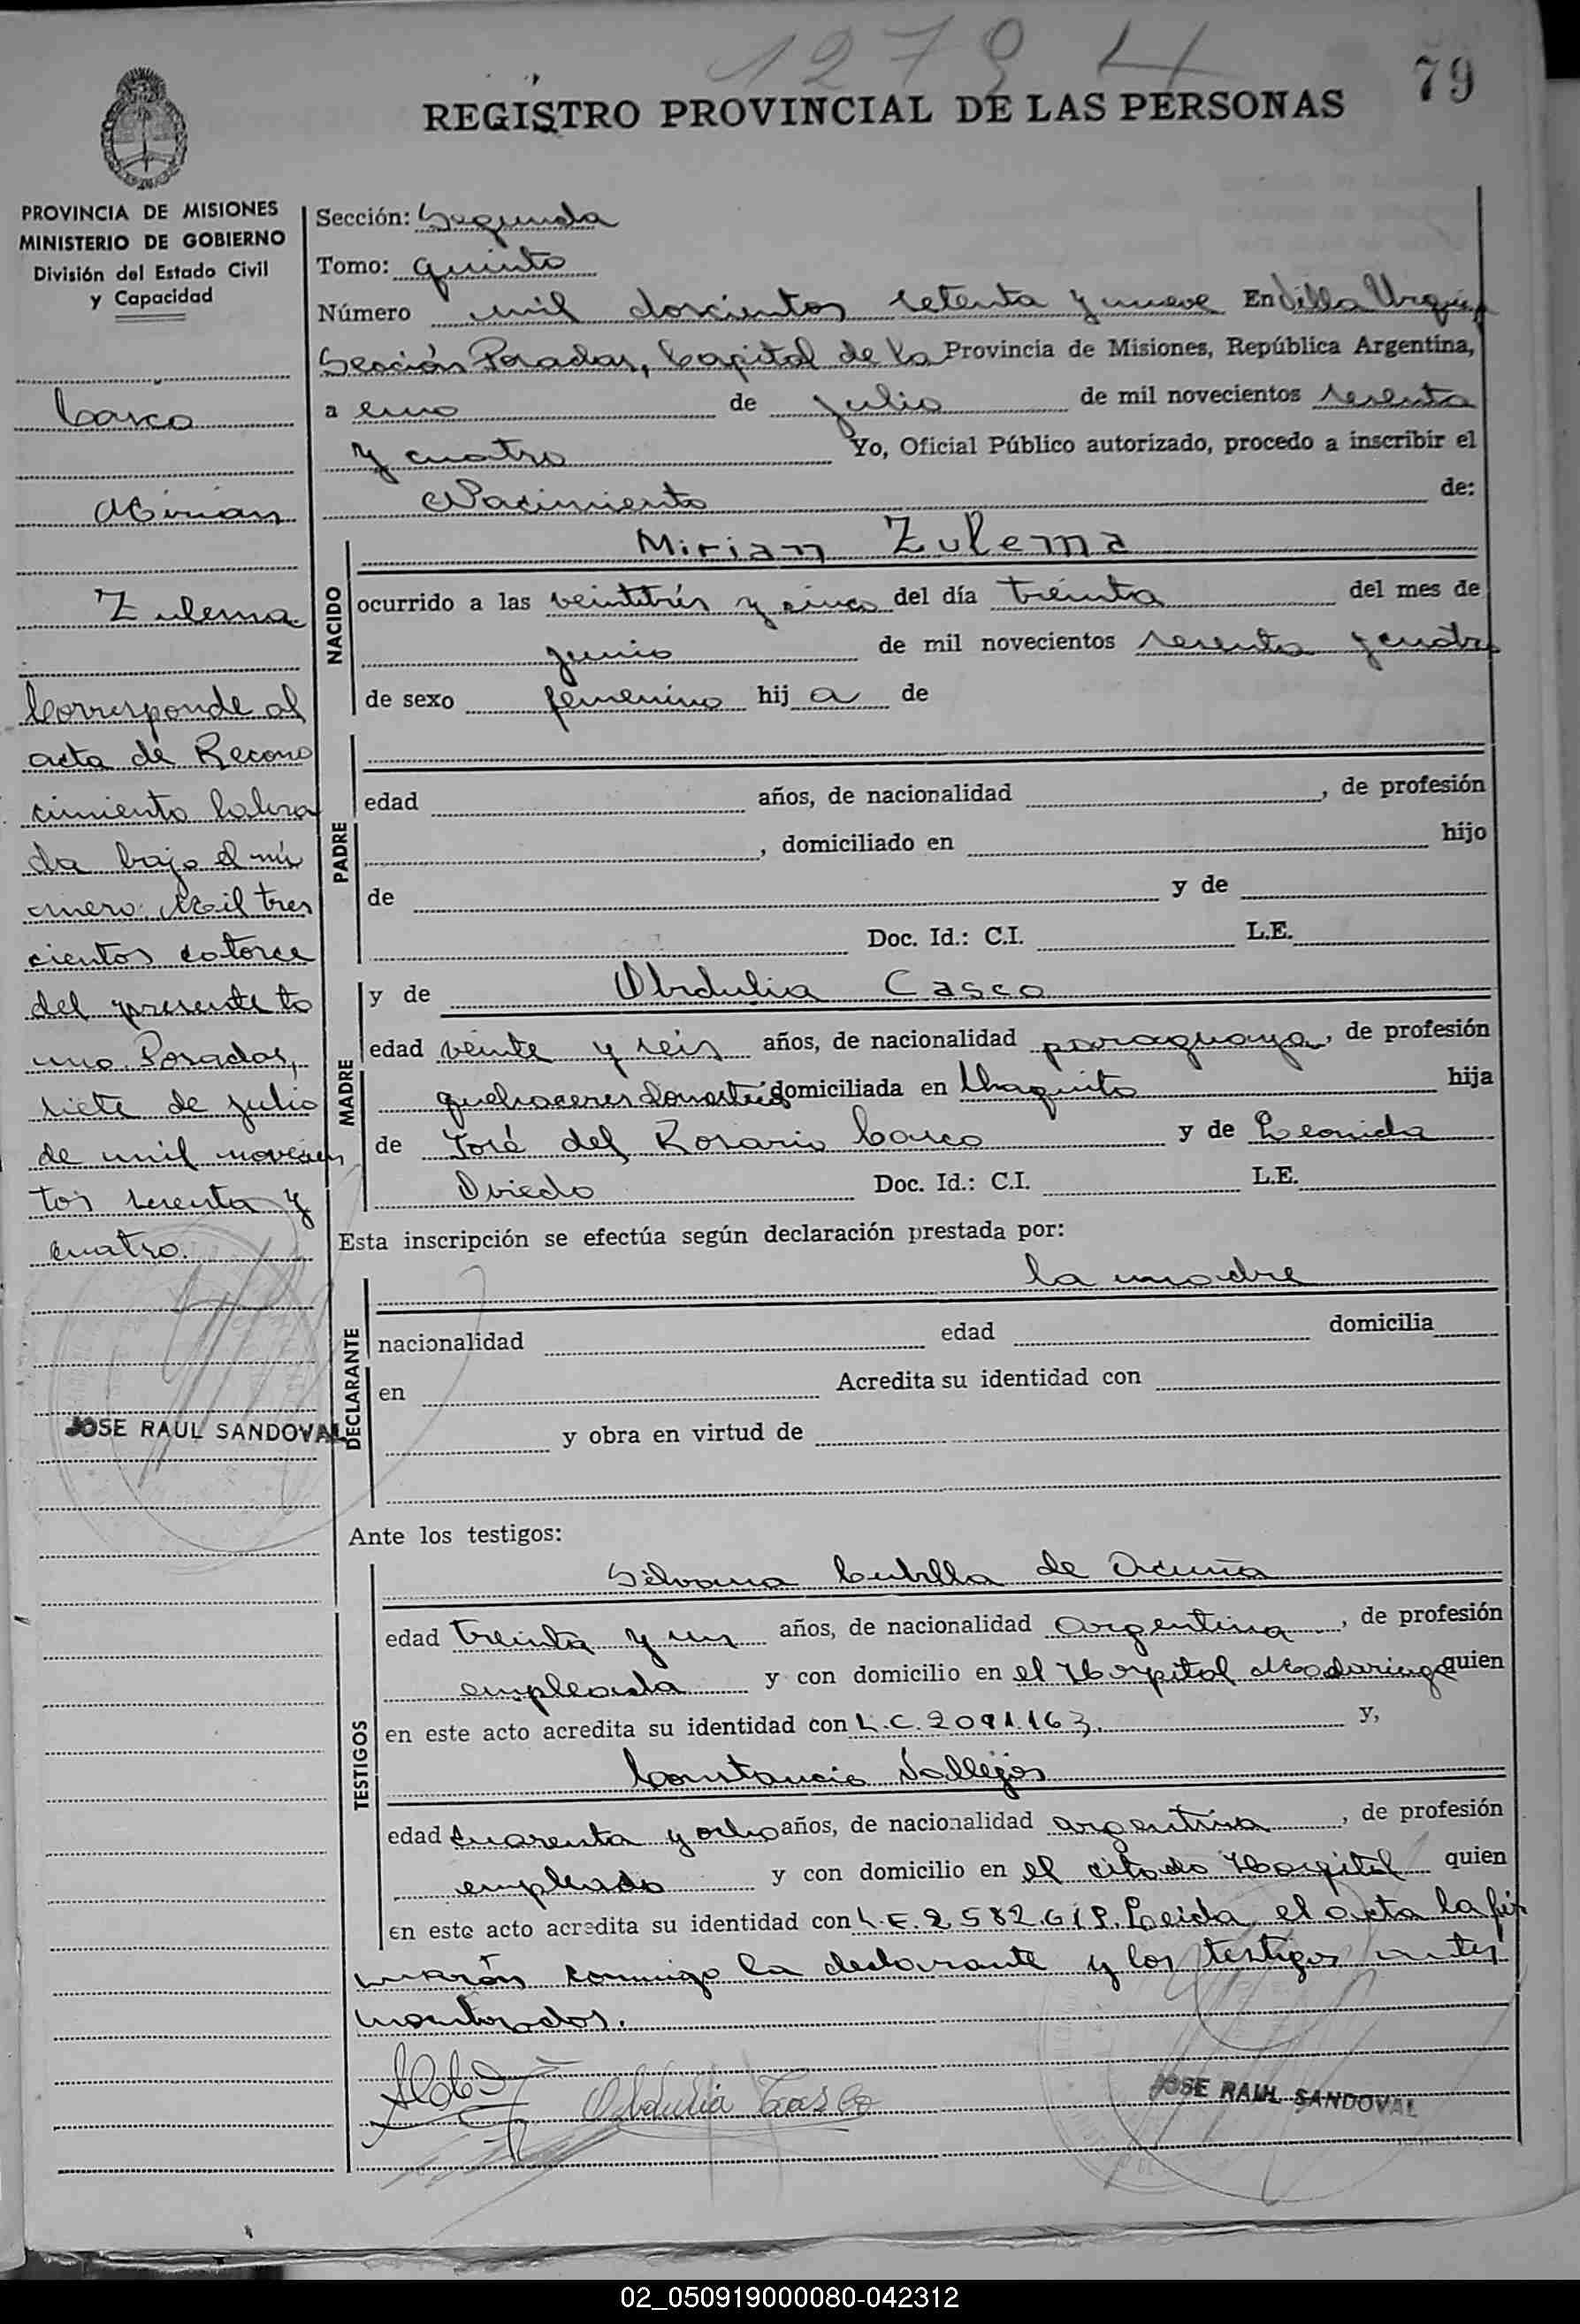 1279 4
79
REGISTRO PROVINCIAL DE LAS PERSONAS
PROVINCIA DE MISIONES
MINISTERIO DE GOBIERNO
División del Estado Civil
y Capacidad
Casco
Mirian
Zulema
Corresponde al
acta de Recono
cimiento labra
da bajo el nú
mero: Mil tres
cientos catorce
del presente to
mo. Posadas,
siete de julio
de mil novecien
tos sesenta y
cuatro.
JOSE RAUL SANDOVAL
Sección: Segunda
Tomo: quinto
Número mil doscientos setenta y nueve En Villa Urquiza
Sección Posadas, Capital de la Provincia de Misiones, República Argentina,
a uno de julio de mil novecientos sesenta
y cuatro Yo, Oficial Público autorizado, procedo a inscribir el
Nacimiento de:
NACIDO
Mirian Zulema
ocurrido a las veintitrés y cinco del día treinta del mes de
junio de mil novecientos sesenta y cuatro
de sexo femenino hij a de
PADRE
edad años, de nacionalidad , de profesión
, domiciliado en hijo
de y de
Doc. Id.: C.I. L.E.
MADRE
y de Obdulia Casco
edad veinte y seis años, de nacionalidad paraguaya, de profesión
quehaceres domésticos domiciliada en Chaquito hija
de José del Rosario Casco y de Leonida
Oviedo Doc. Id.: C.I. L.E.
Esta inscripción se efectúa según declaración prestada por:
DECLARANTE
la madre
nacionalidad edad domicilia
en Acredita su identidad con
y obra en virtud de
Ante los testigos:
TESTIGOS
Silvana Cubilla de Acuña
edad treinta y un años, de nacionalidad argentina, de profesión
empleada y con domicilio en el Hospital Madariaga quien
en este acto acredita su identidad con L.C. 2091.163. y,
Constancio Vallejos
edad cuarenta y ocho años, de nacionalidad argentina, de profesión
empleado y con domicilio en el citado Hospital quien
en este acto acredita su identidad con L.E. 2.582.618. Leida el acta la fir
marón conmigo la declarante y los testigos antes
nombrados.
Obdulia Casco
JOSE RAUL SANDOVAL
02_050919000080-042312